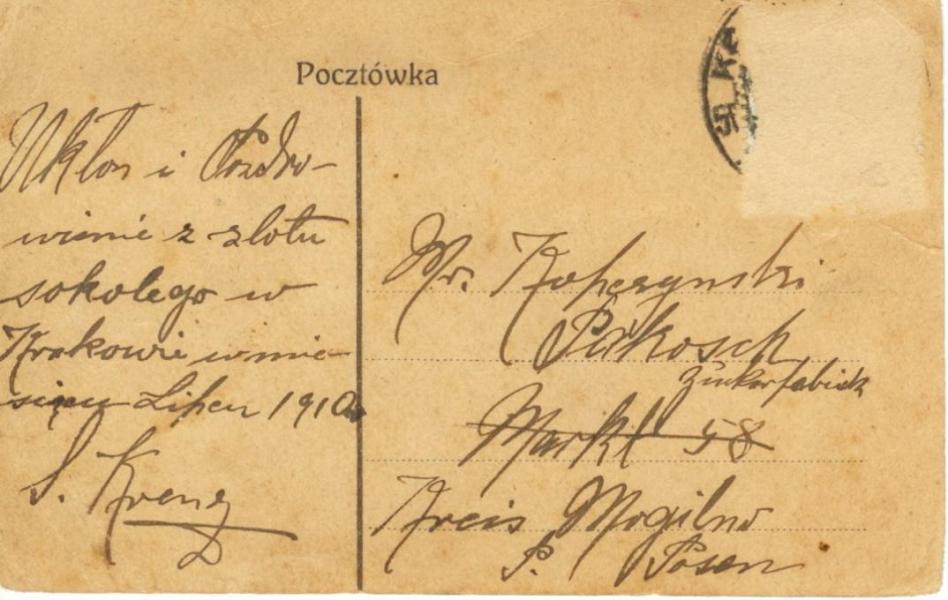 Pocztówka
Ukłon i Pozdro-
wienie z zlotu
sokolego w
Krakowie w mie-
siącu Lipcu 1910
S. Krenz
Mr. Kopczynski
Pakosch
Zuckerfabrick
Markt 58
Kreis Mogilno
P. Posen